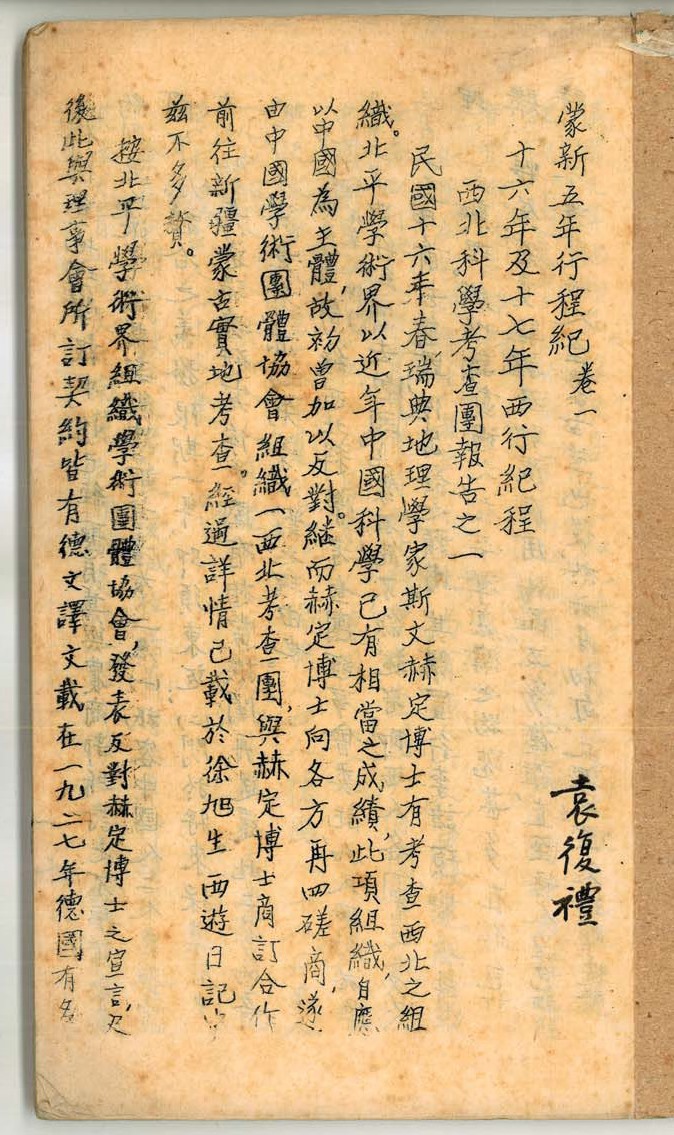 蒙新五年行程紀 卷一
袁復禮
十六年及十七年西行紀程
西北科學考查團報告之一
民國十六年春,瑞典地理學家斯文赫定博士有考查西北之組
織。北平學術界以近年中國科學已有相當之成績,此項組織,自應
以中國為主體,故初曾加以反對。繼而赫定博士向各方再四磋商,遂
由中國學術團體協會組織一西北考查團,與赫定博士商訂合作
前往新疆蒙古實地考查。經過詳情已載於徐旭生西遊日記中
茲不多贅。
按北平學術界組織學術團體協會,發表反對赫定博士之宣言,及
後此與理事會所訂契約皆有德文譯文載在一九二七年德國有名